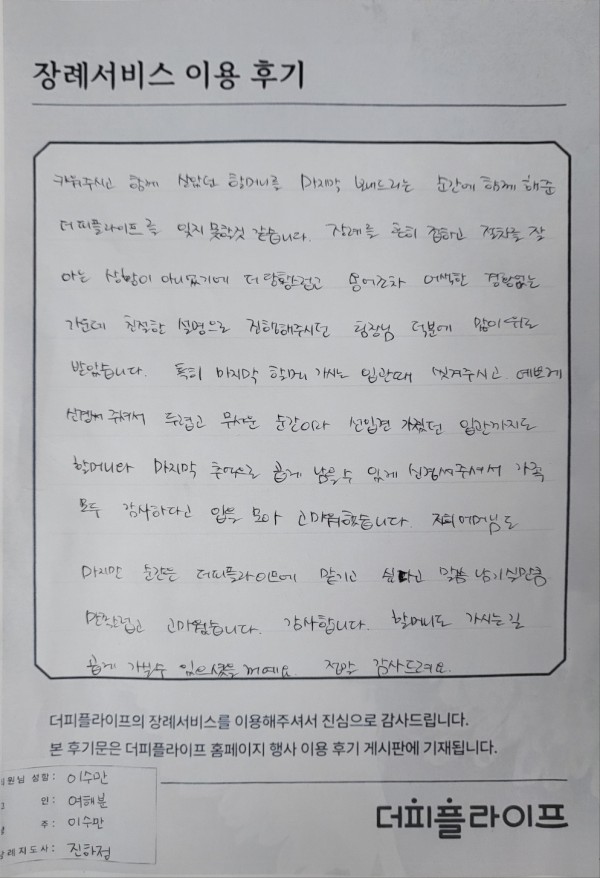 장례서비스 이용 후기
키워주시고 함께 살았던 할머니를 마지막 보내드리는 순간에 함께 해준
더피플라이프를 잊지 못할것 같습니다. 장례를 흔히 접하고 절차를 잘
아는 상황이 아니었기에 더 당황스럽고 용어조차 어색한 경험없는
가운데 친절한 설명으로 진행해주시던 팀장님 덕분에 많이 위로
받았습니다. 특히 마지막 할머니 가시는 입관때 씻겨주시고 예쁘게
신경써 주셔서 두렵고 무서운 순간이라 선입견 가졌던 입관까지도
할머니와 마지막 추억으로 곱게 남을수 있게 신경써주셔서 가족
모두 감사하다고 입을 모아 고마워했습니다. 저희어머님도
마지막 순간은 더피플라이프에 맡기고 싶다고 말씀 남기실만큼
만족스럽고 고마웠습니다. 감사합니다. 할머니도 가시는길
곱게 가실수 있으셨을 꺼예요. 정말 감사드려요.
더피플라이프의 장례서비스를 이용해주셔서 진심으로 감사드립니다.
본 후기문은 더피플라이프 홈페이지 행사 이용 후기 게시판에 기재됩니다.
회원님 성함: 이수만
인: 여해분
주: 이수만
장례지도사: 진하정
더피플라이프